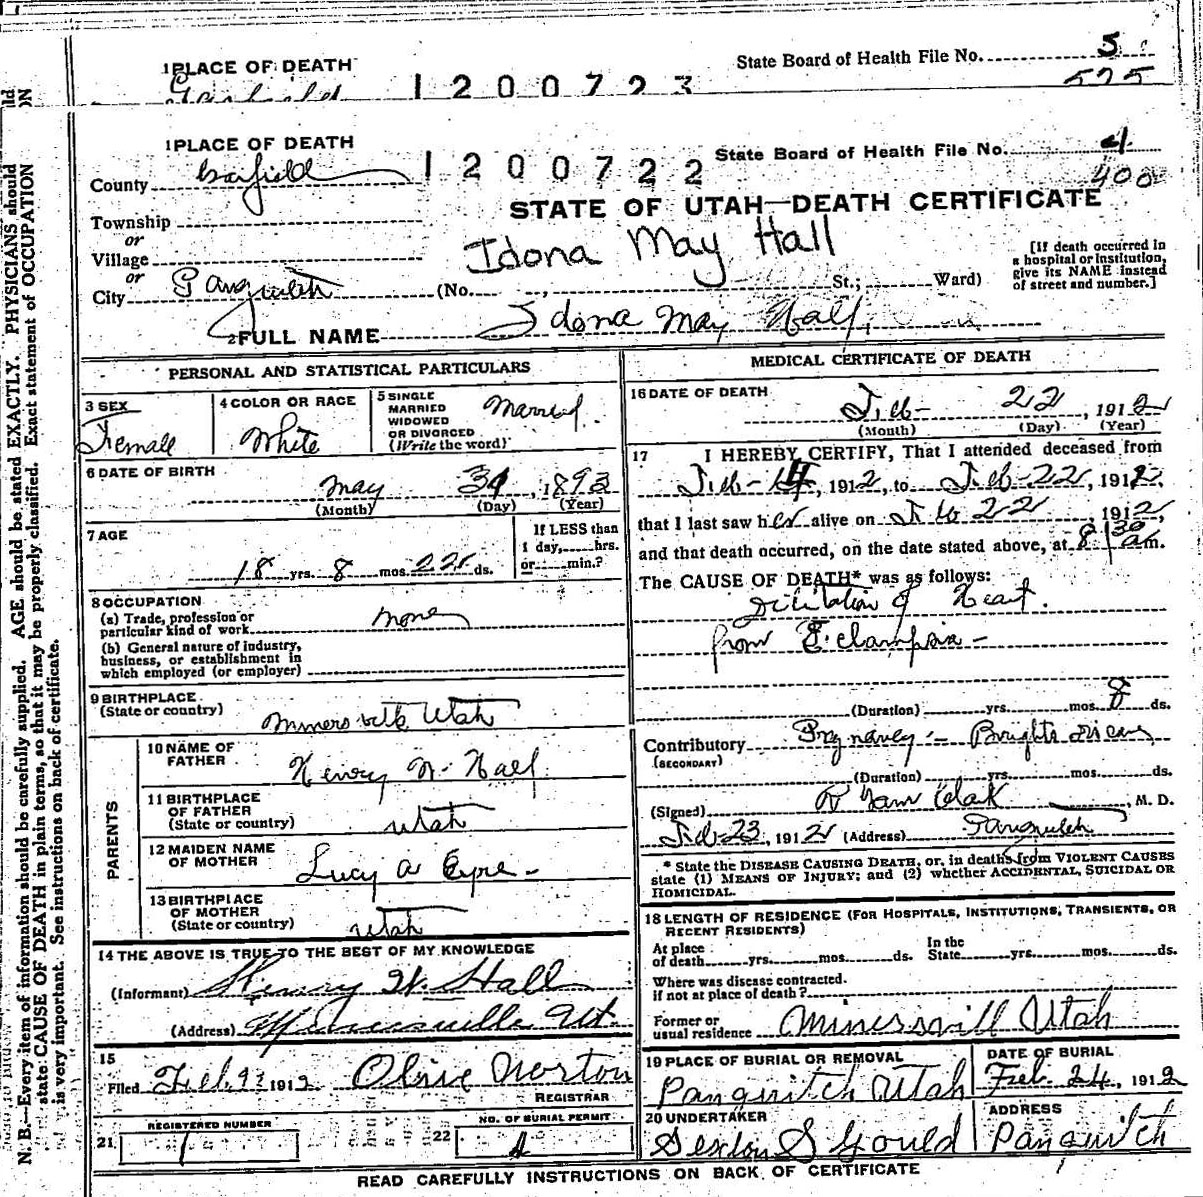 1 PLACE OF DEATH
State Board of Health File No. 5
Garfield
1200723
525
1 PLACE OF DEATH
County Garfield
1200722
State Board of Health File No. 4
400
STATE OF UTAH—DEATH CERTIFICATE
Township
or
Village
or
City Panguitch
Idona May Hall
(No. , St.; Ward)
[If death occurred in
a hospital or institution,
give its NAME instead
of street and number.]
2 FULL NAME Idona May Hall
PERSONAL AND STATISTICAL PARTICULARS
3 SEX
Female
4 COLOR OR RACE
White
5 SINGLE
MARRIED
WIDOWED
OR DIVORCED
(Write the word)
Married
6 DATE OF BIRTH
May 31, 1893
(Month) (Day) (Year)
7 AGE
18 yrs. 8 mos. 22 ds.
If LESS than
1 day, hrs.
or min.?
8 OCCUPATION
(a) Trade, profession or
particular kind of work none
(b) General nature of industry,
business, or establishment in
which employed (or employer)
9 BIRTHPLACE
(State or country)
Minersville Utah
PARENTS
10 NAME OF
FATHER
Henry W. Hall
11 BIRTHPLACE
OF FATHER
(State or country)
Utah
12 MAIDEN NAME
OF MOTHER
Lucy A Eyre
13 BIRTHPLACE
OF MOTHER
(State or country)
Utah
14 THE ABOVE IS TRUE TO THE BEST OF MY KNOWLEDGE
(Informant) Henry W. Hall
(Address) Minersville Ut.
15
Filed Feb. 1912 Olive Norton
REGISTRAR
21 REGISTERED NUMBER
1
22 NO. OF BURIAL PERMIT
1
MEDICAL CERTIFICATE OF DEATH
16 DATE OF DEATH
Feb- 22, 1912
(Month) (Day) (Year)
17 I HEREBY CERTIFY, That I attended deceased from
Feb-14, 1912, to Feb-22, 1912,
that I last saw her alive on Feb 22 1912,
and that death occurred, on the date stated above, at 8 30 am.
The CAUSE OF DEATH* was as follows:
Dilitation of Heart.
from Eclampsia -
(Duration) yrs. mos. 8 ds.
Contributory Pregnancy - Brights Disease
(SECONDARY)
(Duration) yrs. mos. ds.
(Signed) R Clark, M. D.
Feb-23, 1912 (Address) Panguitch
* State the DISEASE CAUSING DEATH, or, in deaths from VIOLENT CAUSES
state (1) MEANS OF INJURY; and (2) whether ACCIDENTAL, SUICIDAL OR
HOMICIDAL.
18 LENGTH OF RESIDENCE (FOR HOSPITALS, INSTITUTIONS, TRANSIENTS, OR
RECENT RESIDENTS)
At place
of death yrs. mos. ds.
In the
State yrs. mos. ds.
Where was disease contracted.
if not at place of death?
Former or
usual residence Minersvill Utah
19 PLACE OF BURIAL OR REMOVAL
Panguitch Utah
DATE OF BURIAL
Feb. 24, 1912
20 UNDERTAKER
Sexton S Gould
ADDRESS
Panguitch
READ CAREFULLY INSTRUCTIONS ON BACK OF CERTIFICATE
N. B.—Every item of information should be carefully supplied. AGE should be stated EXACTLY. PHYSICIANS should
state CAUSE OF DEATH in plain terms, so that it may be properly classified. Exact statement of OCCUPATION
is very important. See instructions on back of certificate.